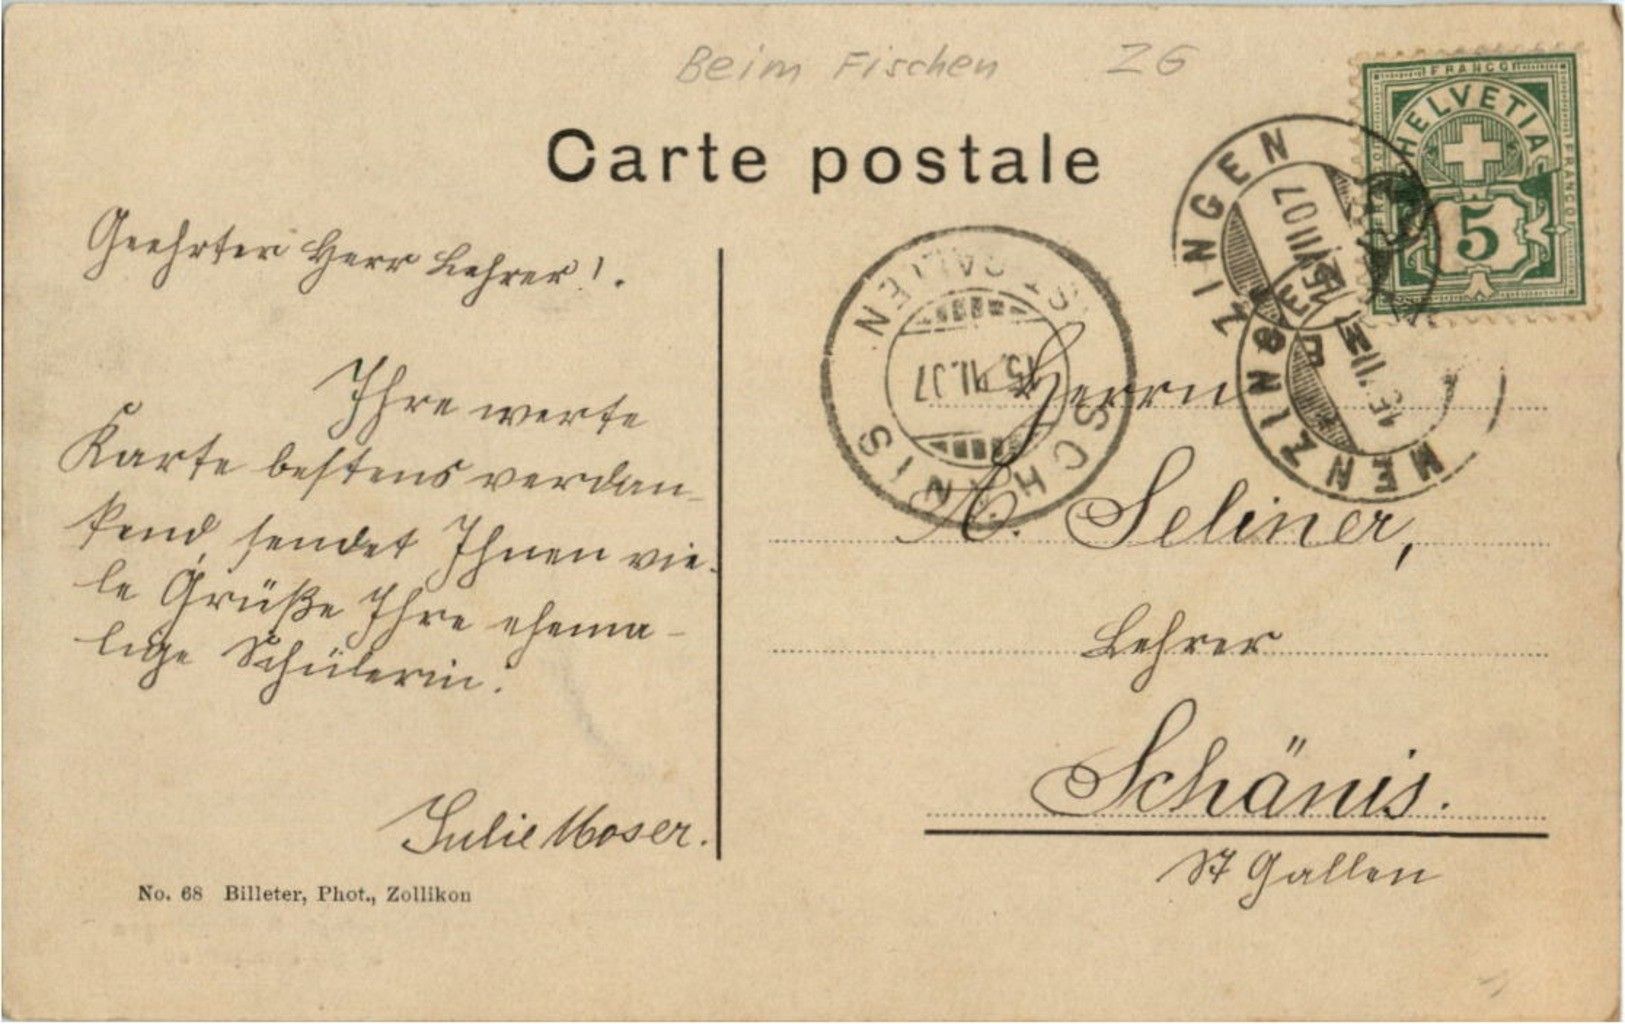 Beim Fischen ZG
Carte postale
FRANCO
HELVETIA
FRANCO
5
MENZINGEN
MENZINGEN
SCHÄNIS
(ST. GALLEN)
15.VII.07
Geehrter Herr Lehrer!.
Ihre werte
Karte bestens verdan-
kend, sendet Ihnen vie-
le Grüße Ihre ehema-
lige Schülerin.
Julie Moser.
No. 68 Billeter, Phot., Zollikon
Herrn
A. Seliner,
Lehrer
Schänis.
St Gallen